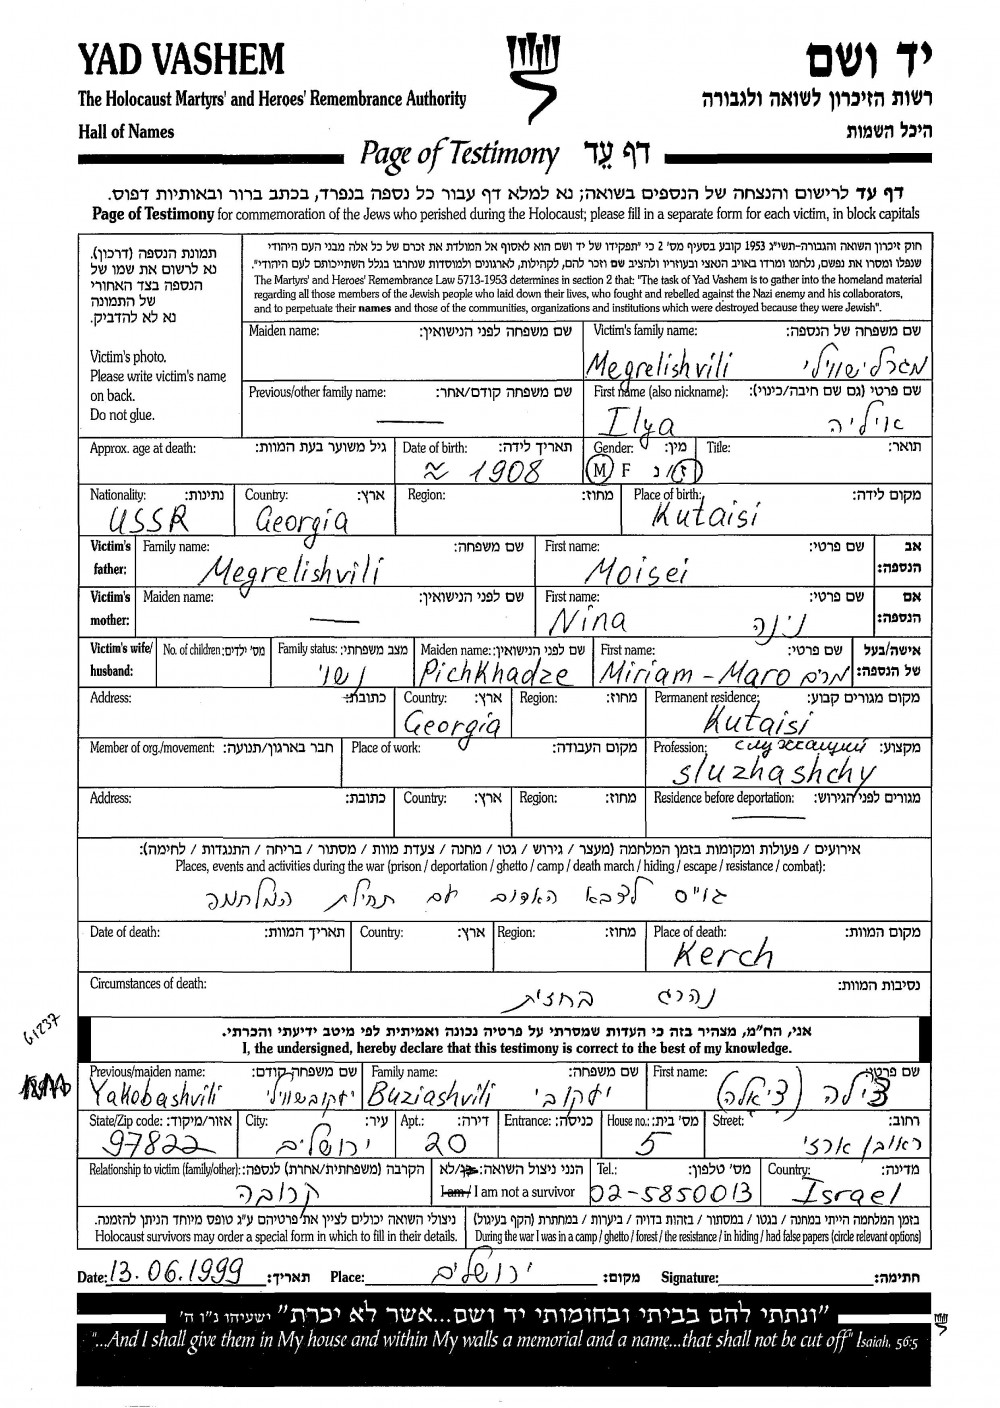 YAD VASHEM
יד ושם
The Holocaust Martyrs' and Heroes' Remembrance Authority
רשות הזיכרון לשואה ולגבורה
Hall of Names
היכל השמות
Page of Testimony דף עֵד
דף עד לרישום והנצחה של הנספים בשואה; נא למלא דף עבור כל נספה בנפרד, בכתב ברור ובאותיות דפוס.
Page of Testimony for commemoration of the Jews who perished during the Holocaust; please fill in a separate form for each victim, in block capitals
תמונת הנספה (דרכון).
נא לרשום את שמו של
הנספה בצד האחורי
של התמונה
נא לא להדביק.
Victim's photo.
Please write victim's name
on back.
Do not glue.
חוק זיכרון השואה והגבורה-תשי"ג 1953 קובע בסעיף מס' 2 כי "תפקידו של יד ושם הוא לאסוף אל המולדת את זכרם של כל אלה מבני העם היהודי
שנפלו ומסרו את נפשם, נלחמו ומרדו באויב הנאצי ובעוזריו ולהציב שם וזכר להם, לקהילות, לארגונים ולמוסדות שנחרבו בגלל השתייכותם לעם היהודי".
The Martyrs' and Heroes' Remembrance Law 5713-1953 determines in section 2 that: "The task of Yad Vashem is to gather into the homeland material
regarding all those members of the Jewish people who laid down their lives, who fought and rebelled against the Nazi enemy and his collaborators,
and to perpetuate their names and those of the communities, organizations and institutions which were destroyed because they were Jewish".
Maiden name: שם משפחה לפני הנישואין:
Victim's family name: שם משפחה של הנספה:
Megrelishvili מגרלישווילי
Previous/other family name: שם משפחה קודם/אחר:
First name (also nickname): שם פרטי (גם שם חיבה/כינוי):
Ilya איליה
Approx. age at death: גיל משוער בעת המוות:
Date of birth: תאריך לידה:
≈ 1908
Gender: מין:
M F ז/נ
Title: תואר:
Nationality: נתינות:
USSR
Country: ארץ:
Georgia
Region: מחוז:
Place of birth: מקום לידה:
Kutaisi
Victim's father:
Family name: שם משפחה:
Megrelishvili
First name: שם פרטי:
Moisei
אב הנספה:
Victim's mother:
Maiden name: שם לפני הנישואין:
First name: שם פרטי:
Nina נינה
אם הנספה:
Victim's wife/husband:
No. of children: מס' ילדים:
Family status: מצב משפחתי:
נשוי
Maiden name: שם לפני הנישואין:
Pichkhadze
First name: שם פרטי:
Miriam - Maro מרים
אישה/בעל של הנספה:
Address: כתובת:
Country: ארץ:
Georgia
Region: מחוז:
Permanent residence: מקום מגורים קבוע:
Kutaisi
Member of org./movement: חבר בארגון/תנועה:
Place of work: מקום העבודה:
Profession: מקצוע:
служащий
sluzhashchy
Address: כתובת:
Country: ארץ:
Region: מחוז:
Residence before deportation: מגורים לפני הגירוש:
אירועים / פעולות ומקומות בזמן המלחמה (מעצר / גירוש / גטו / מחנה / צעדת מוות / מסתור / בריחה / התנגדות / לחימה):
Places, events and activities during the war (prison / deportation / ghetto / camp / death march / hiding / escape / resistance / combat):
גויס לצבא האדום עם תחילת המלחמה
Date of death: תאריך המוות:
Country: ארץ:
Region: מחוז:
Place of death: מקום המוות:
Kerch
Circumstances of death: נסיבות המוות:
נהרג בחזית
אני, הח"מ, מצהיר בזה כי העדות שמסרתי על פרטיה נכונה ואמיתית לפי מיטב ידיעתי והכרתי.
I, the undersigned, hereby declare that this testimony is correct to the best of my knowledge.
61237
Previous/maiden name: שם משפחה קודם:
Yakobashvili יעקובשווילי
Family name: שם משפחה:
Buziashvili יעקובי
First name: שם פרטי:
צילה (ציאלה)
State/Zip code: אזור/מיקוד:
97822
City: עיר:
ירושלים
Apt.: דירה:
20
Entrance: כניסה:
House no.: מס' בית:
5
Street: רחוב:
ראובן ארזי
Relationship to victim (family/other): הקרבה (משפחתית/אחרת) לנספה:
קרובה
הנני ניצול השואה: כן/לא
I am/ I am not a survivor
Tel.: מס' טלפון:
02-5850013
Country: מדינה:
Israel
ניצולי השואה יכולים לציין את פרטיהם ע"ג טופס מיוחד הניתן להזמנה.
Holocaust survivors may order a special form in which to fill in their details.
בזמן המלחמה הייתי במחנה / בגטו / במסתור / בזהות בדויה / ביערות / במחתרת (הקף בעיגול)
During the war I was in a camp / ghetto / forest / the resistance / in hiding / had false papers (circle relevant options)
Date: 13.06.1999 תאריך: Place: ירושלים מקום: Signature: חתימה:
"ונתתי להם בביתי ובחומותי יד ושם...אשר לא יכרת" ישעיהו נ"ו ה'
"...And I shall give them in My house and within My walls a memorial and a name...that shall not be cut off" Isaiah, 56:5